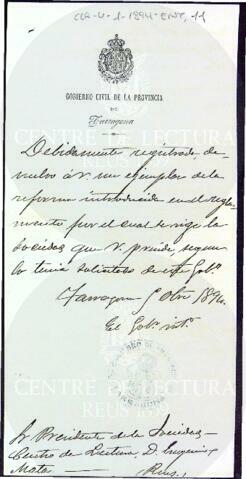 CLR-U-1-1894-ENT, 11
GOBIERNO CIVIL DE LA PROVINCIA
DE
Tarragona
Debidamente registrado, de-
vuelvo á V. un ejemplar de la
reforma introducida en el regla-
mento por el cual se rige la
Sociedad que V. preside, segun
lo tenia solicitado de este Gobº.
Tarragona 5 Obre 1894.
El Gobr. intº.
Sr Presidente de la Sociedad
Centro de Lectura, D. Eugenio
Mata — Reus.
CENTRE DE LECTURA
REUS 1859